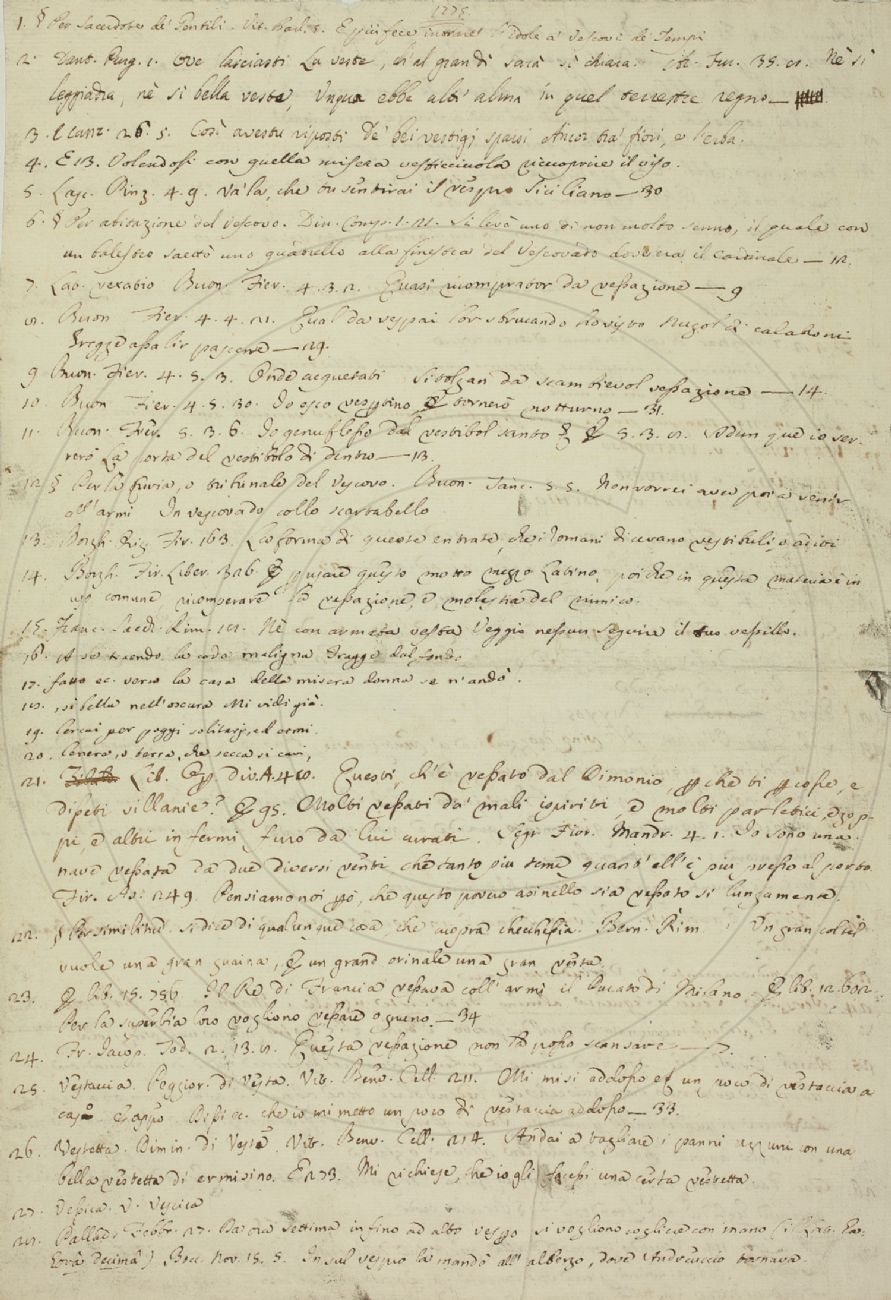 1275
1. § Per Sacerdote de' Gentili. Vit. Barl. 8. E più fece intorno l'Idole a' Vescovi de' Tempi
2. Dant. Purg. 1. Ove lasciasti La veste, ch'al gran dì sarà sì chiara. Fur. 35. Nè sì
leggiadra, nè sì bella veste, Unqua ebbe altr'alma in quel terrestre regno —
3. E canz. 26. 5. Così avestu riposti De' bei vestigj sparsi Ancor tra' fiori, e l'erba.
4. E 13. Volendosi con quella misera vesticciuola ricuoprire il viso.
5. Lasc. Pinz. 4. 9. Va' là, che tu sentirai il vespro Siciliano — 30
6. § Per abitazione del Vescovo. Din. Comp. 1. 21. Si levò uno di non molto senno, il quale con
un balestro saettò uno quadrello alla finestra del Vescovado dov'era il Cardinale — 12.
7. Lat. vexatio Buon. Fier. 4. 3. 2. Quasi ricomprator da vessazione — 9
8. Buon. Fier. 4. 4. 21. Qual da vespai lor sbrucando ho visto Nugol di calabroni
Gregge assalir pascente — 29.
9 Buon. Fier. 4. 5. 3. Onde acquetati Si tolgan da scambievol vessazione — 14.
10. Buon. Fier. 4. 5. 30. Io esco vespertino, E tornerò notturno — 31.
11. Buon. Fier. 5. 3. 6. Io genuflesso dal vestibol santo E 5. 3. 8. Adun que io ser-
rerò La porta del vestibolo di dentro — 13.
12. § Per la Curia, o tribunale del Vescovo. Buon. Tanc. 5. 5. Non vorrei aver poi a venir
all'armi In vescovado collo scartabello
13. Borgh. Orig. Fir. 163. La forma di queste entrate, che i Romani dicevano vestibuli, o aditi
14. Borgh. Fir. Liber. 326 E pigliare questo motto mezzo Latino, poichè in questa materia è in
uso comune, ricomperare la vessazione, e molestia del nimico.
15. Franc. Sacch. Rim. Nè con armata vesta Veggio nessun seguire il tuo vessillo.
16. A se traendo la coda maligna Trasse del fondo
17. fatto ec. verso la casa della misera donna se n'andò.
18. sì bella nell'oscura Mi vidi già.
19. Cercai per poggi solitarj, ed ermi.
20. Cenere, o terra, che secca si cavi,
21. Lib. Op. div. A. 480. Questi, ch'è vessato dal Dimonio, perchè ti percosse, e
dipeti villanie? E 95. Molti vessati da' mali ispiriti e molti parletici, e zop-
pi e altri infermi furo da lui curati. Segr. Fior. Mandr. 4. 1. Io sono una
nave vessata da due diversi venti che tanto più teme quant'ell'è più presso al porto
Fir. As. 249. Pensiamo noi però, che questo povero asinello sia vessato sì lungamente.
22. § Per similitud. si dice di qualunque cosa che cuopra checchessia. Bern. Rim. Un gran coltel
vuole una gran guaina, E un grand'orinale una gran vesta.
23. E lib. 15. 756 Il Re di Francia vessava coll'armi il Ducato di Milano. E lib. 12. 602
Per la superbia loro vogliono vessare ognuno. — 34
24. Fr. Jacop. Tod. 2. 13. 8. Questa vessazione non la posso scansare — 7.
25. Vestaccia. Peggior. di Vesta. Vit. Benv. Cell. 211. Mi misi addosso un poco di vestaccia a
caso. E appo. Dissi ec. che io mi metto un poco di vestaccia addosso — 33.
26. Vestetta. Dimin. di Vesta. Vit. Benv. Cell. 214. Andai a tagliare i panni azzurri con una
bella vestetta di ermisino. E 273. Mi richiese, che io gli facessi una certa vestetta.
27. Vessica. V. Vescica
28. Pallad. Febbr. 27. Da ora settima infino ad alto vespro si vogliono cogliere con mano (il Lat. ha
Lora decima) Bocc. Nov. 15. 5. In sul vespro la mandò all'albergo, dove Andreuccio tornava.